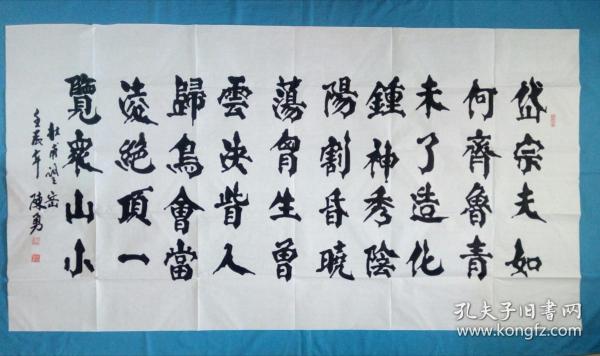 岱宗夫如
何齊魯青
未了造化
鍾神秀陰
陽割昏曉
蕩胷生曾
雲決眥人
歸鳥會當
淩絕頂一
覽衆山小
杜甫望岳
壬辰年 陳勇
孔夫子旧书网
www.kongfz.com